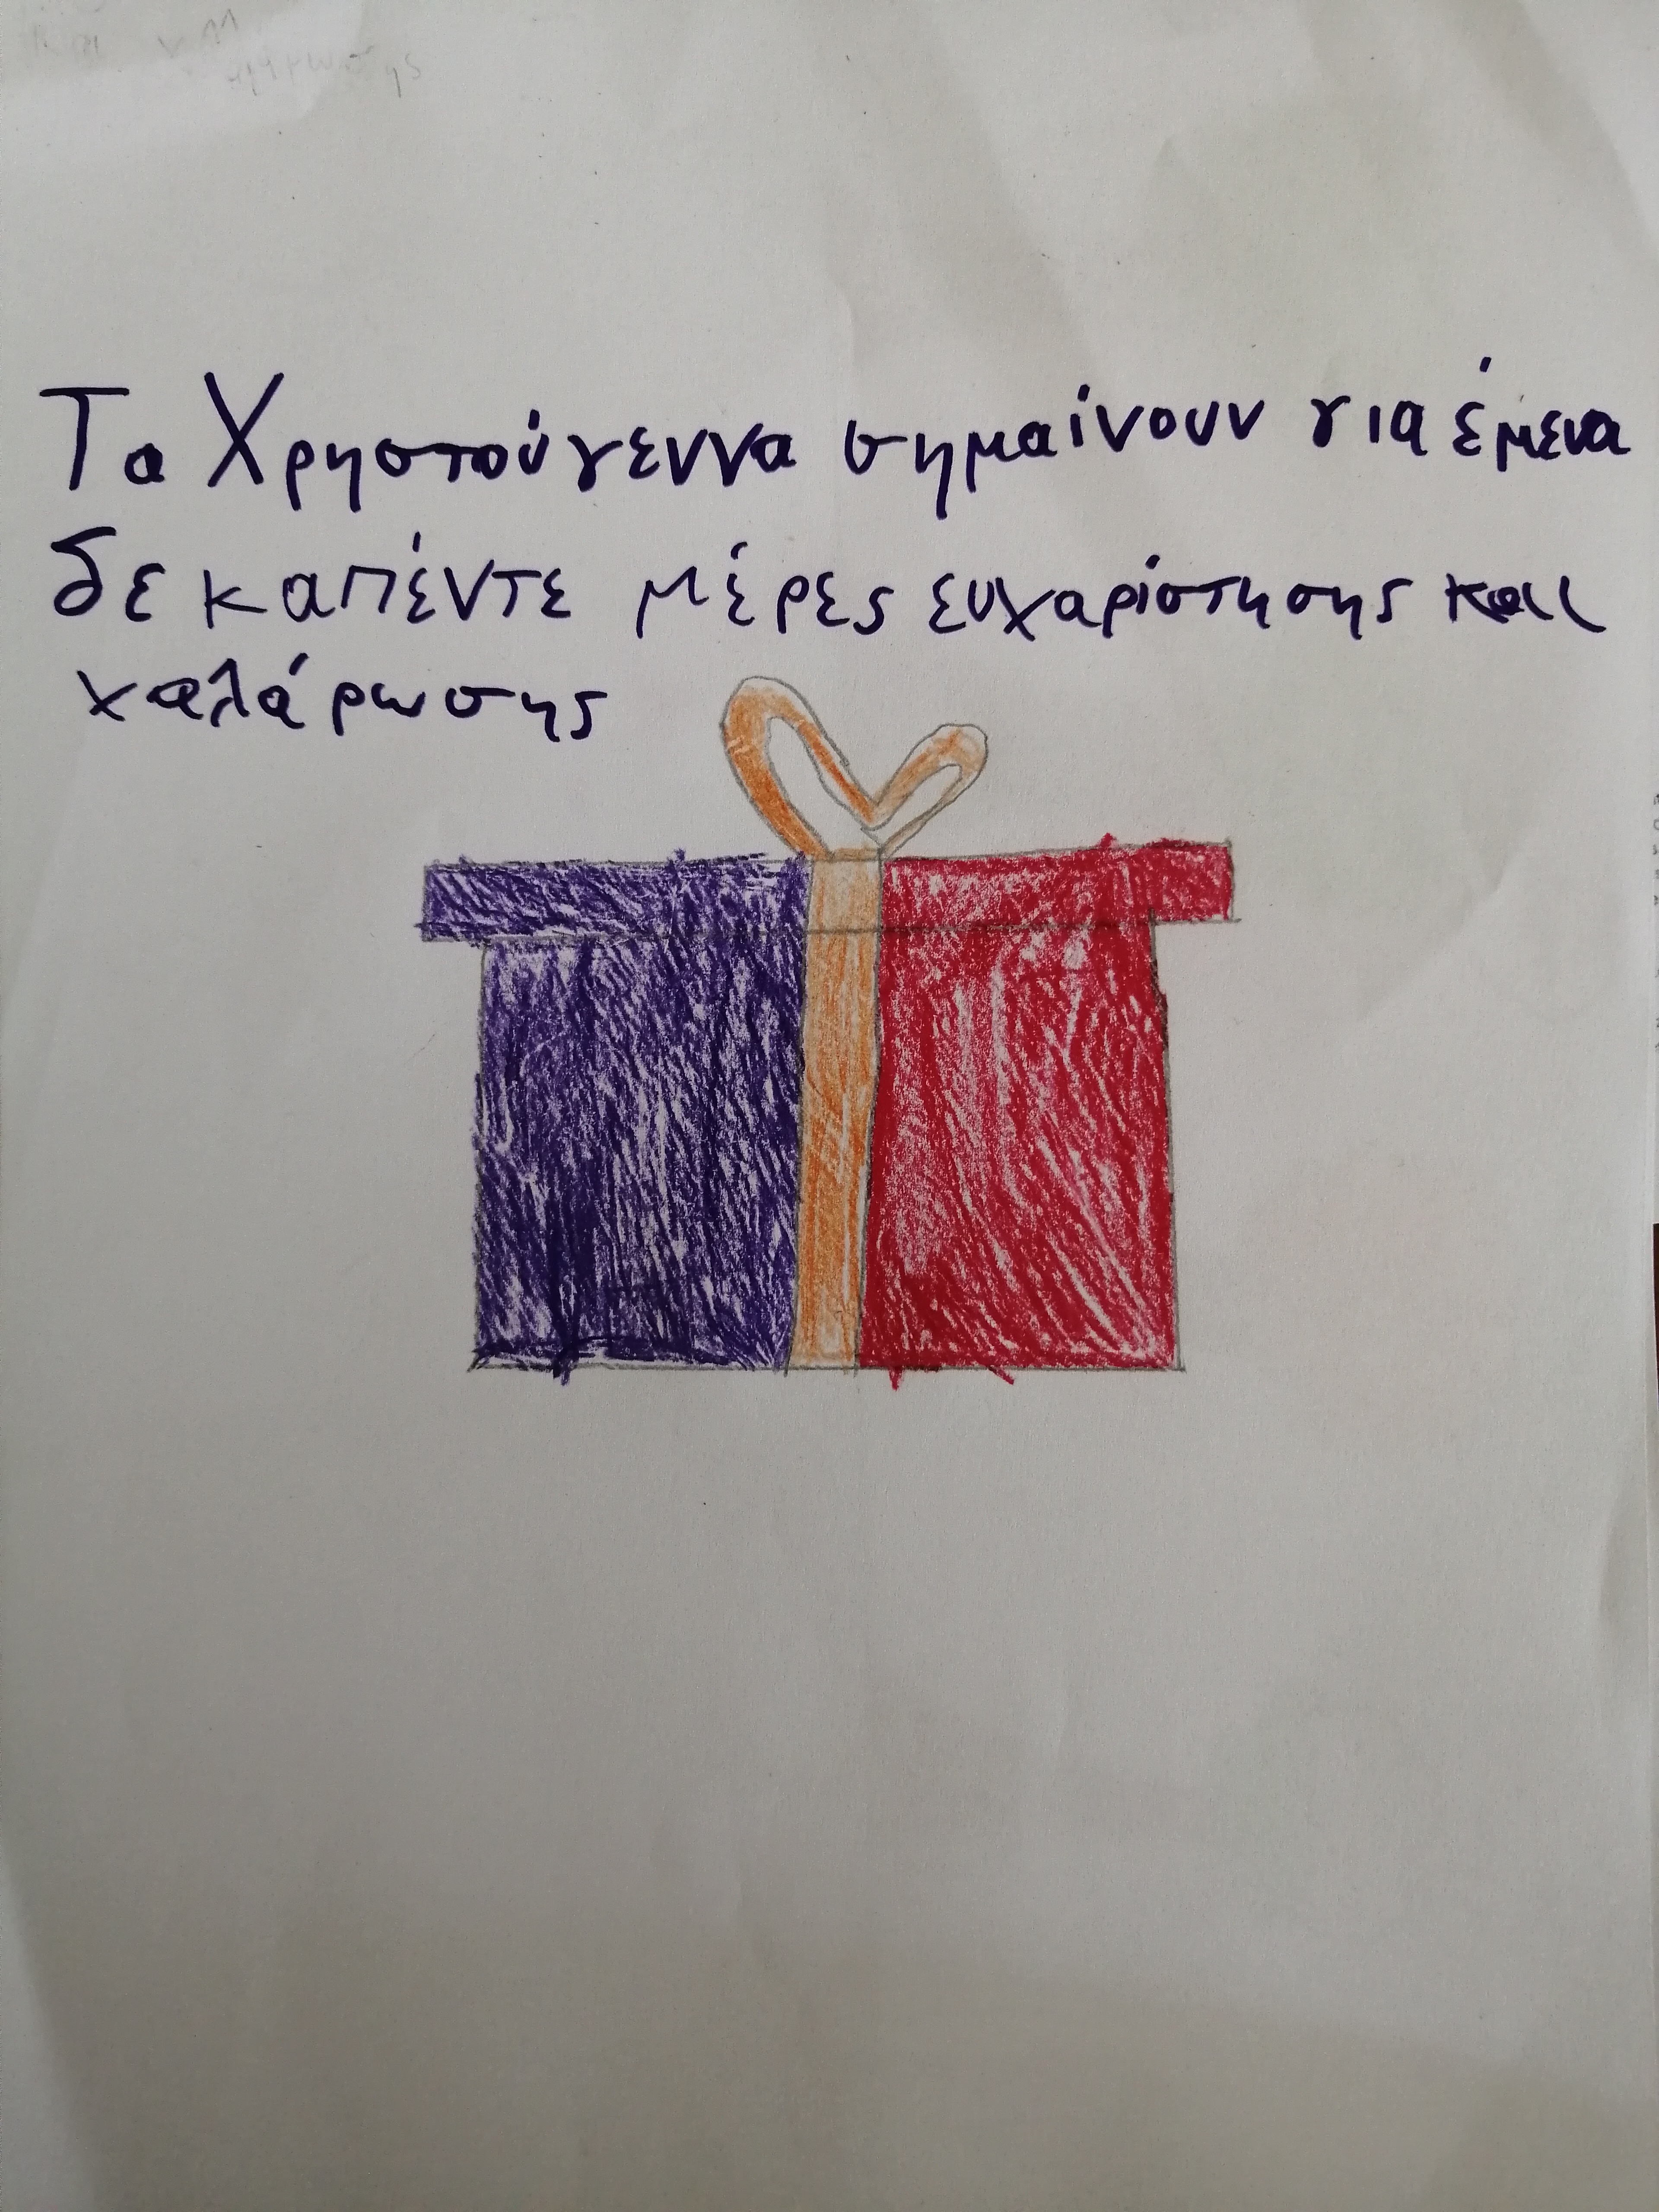 Τα Χρηστούγεννα σημαίνουν για έμενα
δεκαπέντε μέρες ευχαρίστησης και
χαλάρωσης